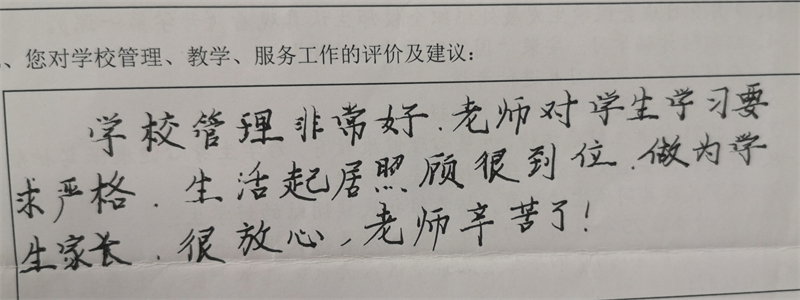 、您对学校管理、教学、服务工作的评价及建议：
学校管理非常好.老师对学生学习要
求严格.生活起居照顾很到位.做为学
生家长.很放心,老师辛苦了!